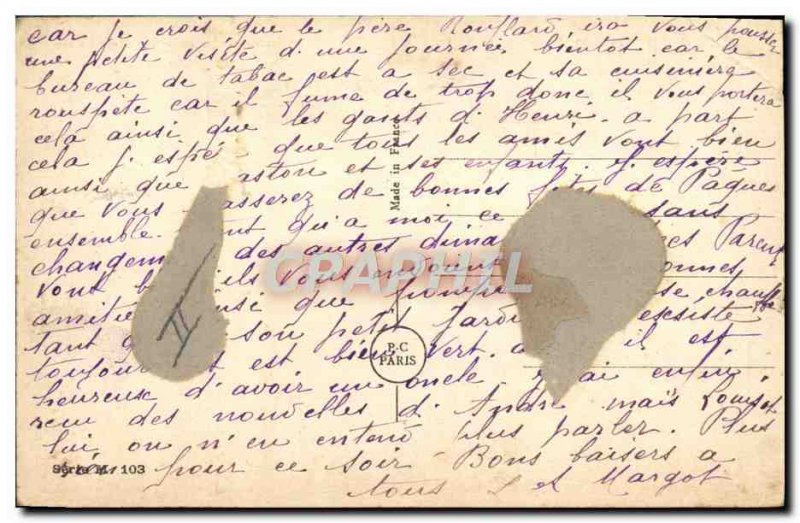 car je crois que le père Rouflard ira vous pousser
une petite visite d'une journée bientôt car le
bureau de tabac est a sec et sa cuisinière
rouspète car il fume de trop donc il vous portera
celà ainsi que les gants d'Henri. a part
cela j'espé que tous les amis vont bien
ainsi que aston et ses enfants. J'espère
que vous asserez de bonnes fêtes de Pâques
ensemble. qu'a moi ce sans
changem des autres dima es Parents
vont b ils vous envoient onnes
amitié si que pompe se chauffe
tant q son petit jardi
toujour est bien vert. il est
heureuse d'avoir un oncle. J'ai enfin
reçu des nouvelles d'André mais Louis
lui on n'en entend plus parler. Plus
rien pour ce soir. Bons baisers a
tous et Margot
Made in France
P-C
PARIS
Série M. 103
CPAPHIL